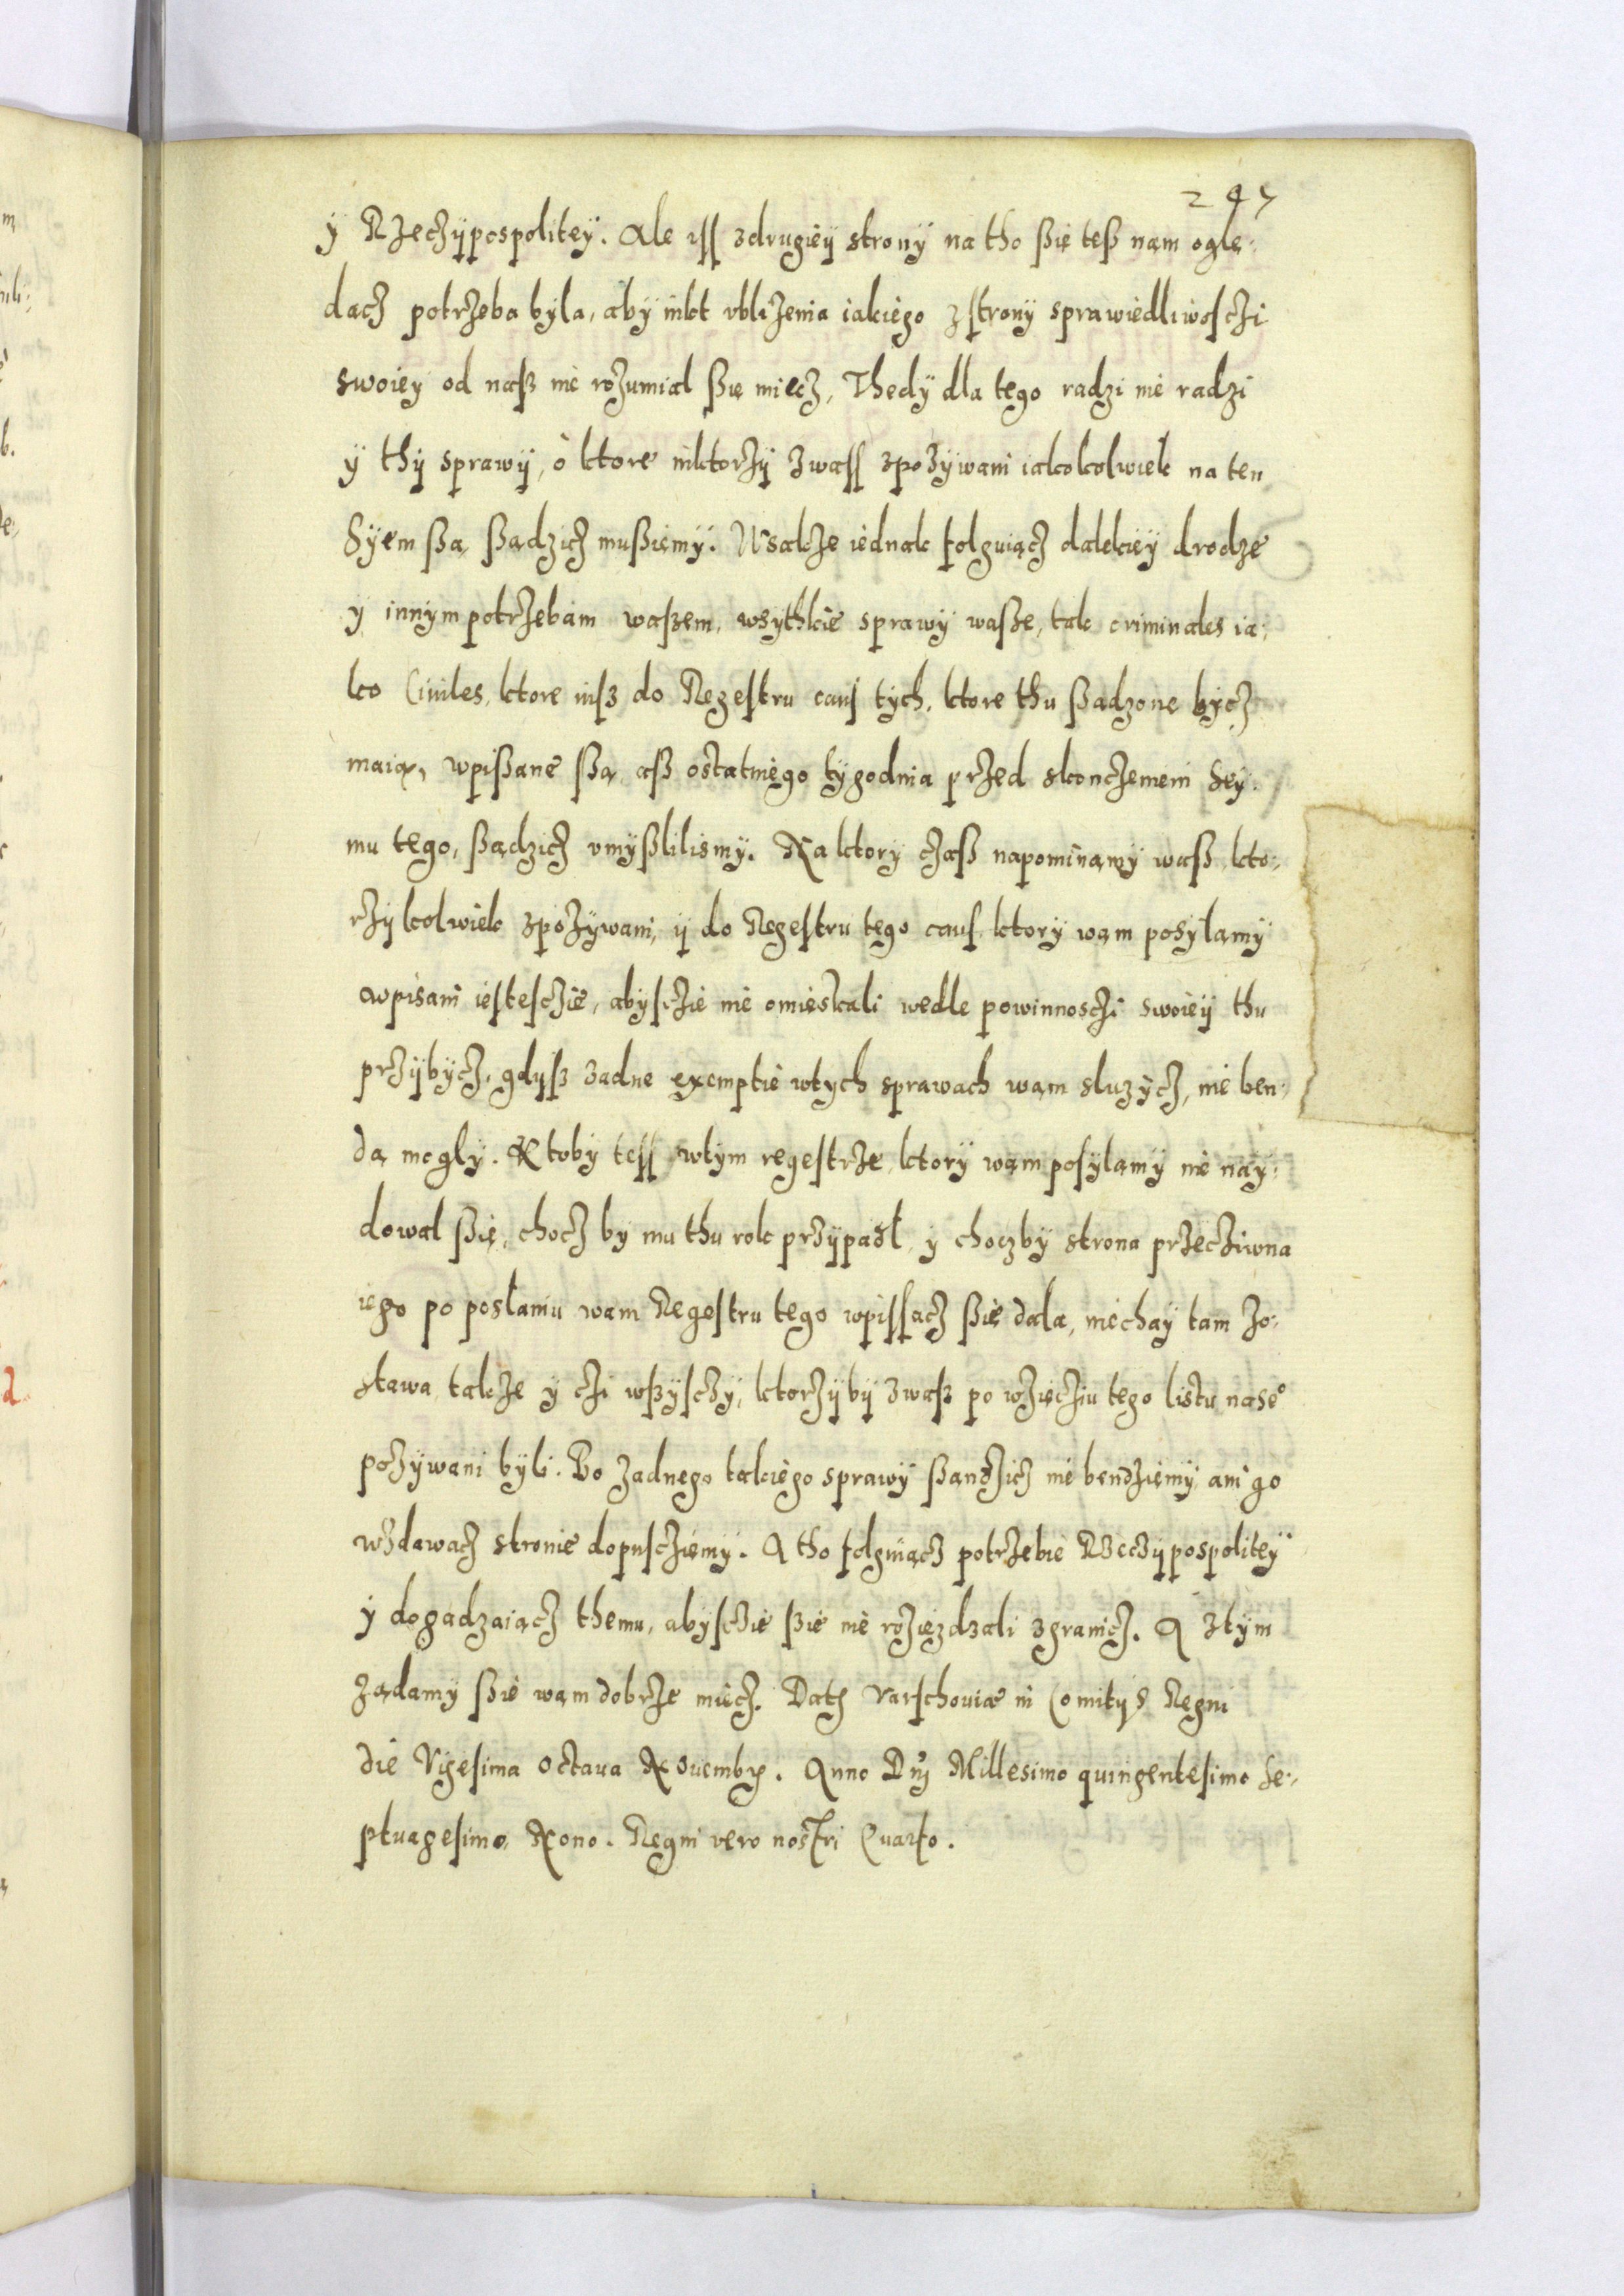 247
ÿ Rzeczÿpospolitey. Ale iſſ zdrugieÿ stronÿ na tho ßię teß nam oglę-
dacz potrzeba byla, abÿ nikt vbliżenia iakiego z stronÿ sprawiedliwosczi
swoieÿ od naß nie rozumial ßię miecz, Thedÿ dla tego radzi nie radzi
ÿ thÿ sprawÿ, o ktore niktorzÿ z waſſ zpozÿwani iakokolwiek na ten
Syem ßą, ßądzicz mußiemÿ. Wsakże iednak folguiącz dalekieÿ drodze
ÿ innÿm potrzebam waßem, wsÿthkie sprawÿ waße, tak criminales ia-
ko Ciuiles, ktore iusz do Regestru caus tÿch, ktore thu ßądzone bÿcz
maią, wpißane ßą, aß ostatniego tÿgodnia przed skonczeniem Seÿ-
mu tego, ßądzicz vmÿßlilismÿ. Na ktorÿ czaß napominamÿ waß, kto-
rzÿkolwiek zpozÿwani, ÿ do Regestru tego caus, ktorÿ wam posÿlamÿ
wpisani iestesczie, abÿsczie nie omieskali wedle powinnosczi swoieÿ thu
przÿbÿcz, gdÿsz zadne exemptie wtÿch sprawach wam sluzÿcz, nie ben-
dą moglÿ. Ktobÿ teſſ wtÿm regestrze, ktorÿ wam posÿlamÿ nie naÿ-
dowal ßię, chocz by mu thu rok przÿpadl, ÿ choczbÿ strona przecziwna
iego po poslaniu wam Regestru tego wpiſſacz ßię dala, niechaÿ tam zo-
stawa, takze ÿ czi wßÿsczÿ, ktorzÿbÿ z waß po wzięcziu tego listu nase°
pozÿwani bÿli. Bo zadnego takiego sprawÿ ßandzicz nie bendziemÿ, ani go
wzdawacz stronie dopusczimÿ. A tho folguiącz potrzebie Rzeczÿpospoliteÿ
ÿ dogadzaiącz themu, abÿsczie ßię nie roziezdzali z granicz. A z tÿm
ządamÿ ßię wam dobrze miecz. Datę Varschouiæ in Comitijs Regni
die Vigesima octaua Nouembris. Anno Dnj Millesimo quingentesimo Se-
ptuagesimo Nono. Regni vero nostri Quarto.